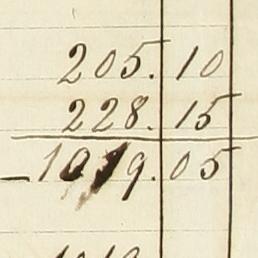 205.10
228.15
1019.05